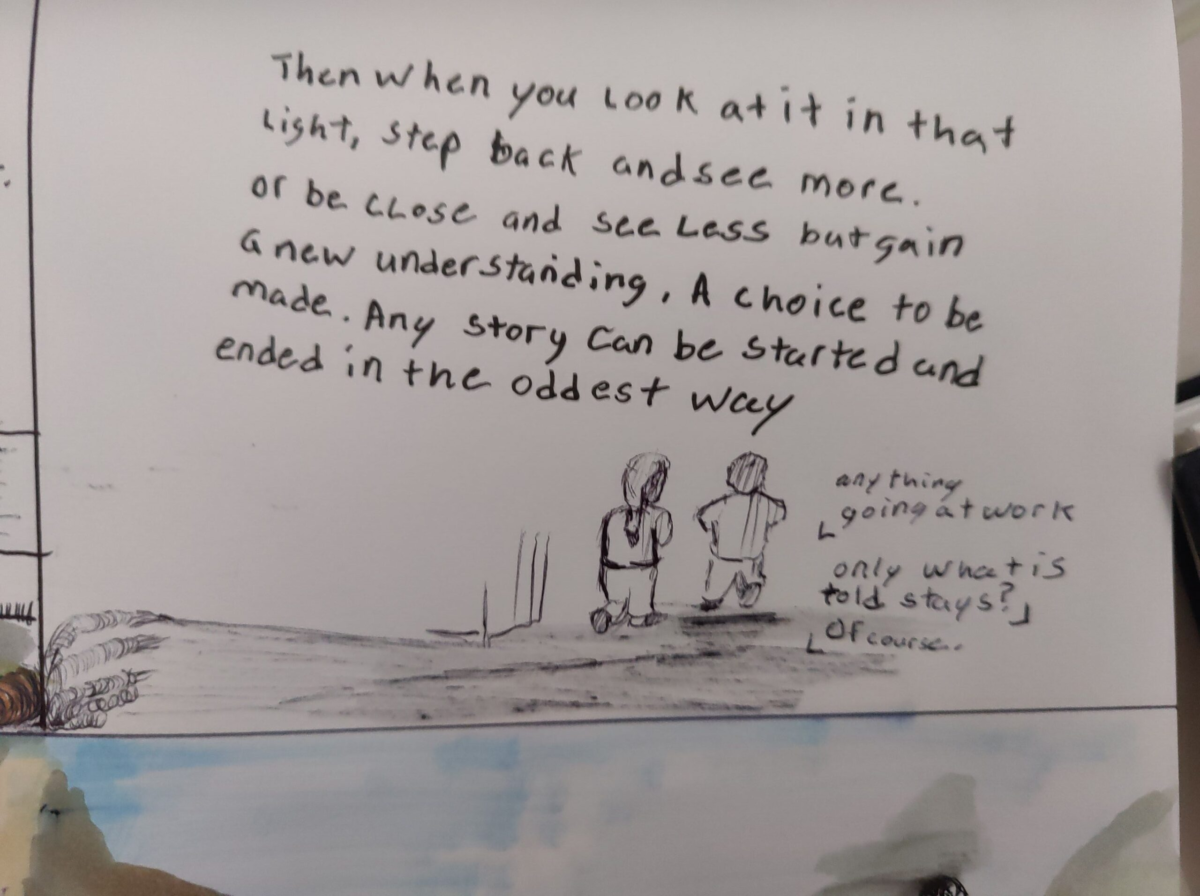 Then when you look at it in that
Light, step back and see more.
or be close and see Less but gain
a new understanding. A choice to be
made. Any story can be started and
ended in the oddest way
any thing
going at work
only what is
told stays?
Of course..